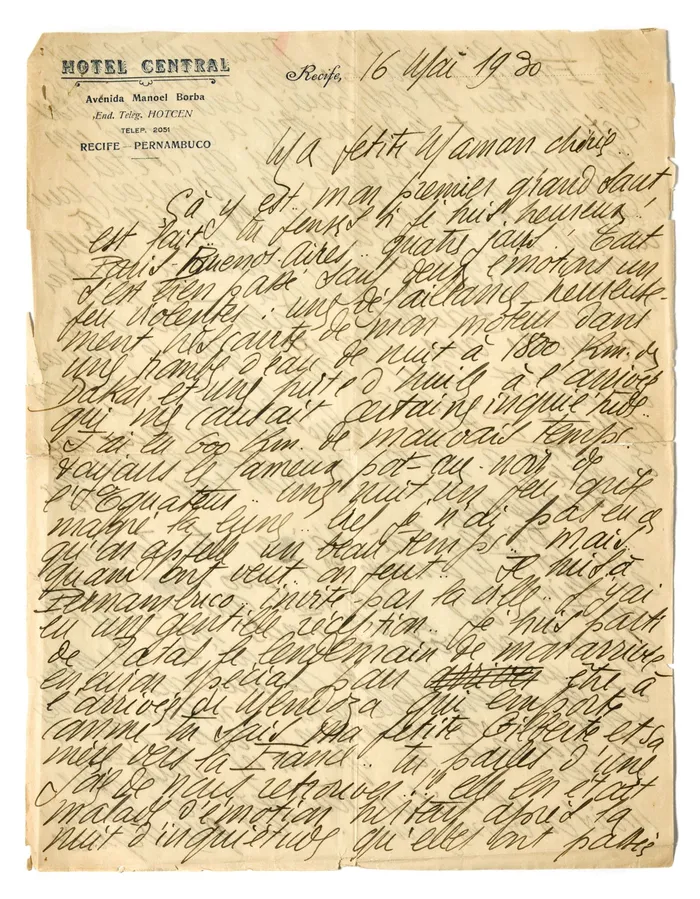 HOTEL CENTRAL
Avénida Manoel Borba
End. Teleg. HOTCEN
TELEP. 2051
RECIFE — PERNAMBUCO
Recife, 16 Mai 1930
Ma petite Maman chérie..
Ça y est mon premier grand saut
est fait.. tu penses si je suis heureux!
Paris-Buenos-Aires.. quatre jours! Tout
s'est bien passé sauf deux émotions un
peu violentes: une défaillance heureuse-
ment de mon moteur dans
une trombe d'eau de nuit à 1800 Km. de
Dakar et une perte d'huile à l'arrivée
qui me causait certaine inquiétude..
J'ai eu 600 Km. de mauvais temps.
toujours le fameux pot-au-noir de
l'Equateur.. une nuit un peu grise
malgré la lune.. bref je n'ai pas eu ce
qu'on appelle un beau temps.. mais
quand on veut on peut.. Je suis à
Pernambuco.. invité par la ville.. j'y ai
eu une gentille réception.. Je suis parti
de Natal le lendemain de mon arrivée
en avion spécial pour être à
l'arrivée de Mendoza qui emporte
comme tu sais ma petite Gilberte et sa
mère vers la France.. tu parles d'une
joie de nous retrouver.. elle en était
malade d'émotion après la
nuit d'inquiétude qu'elles ont passée